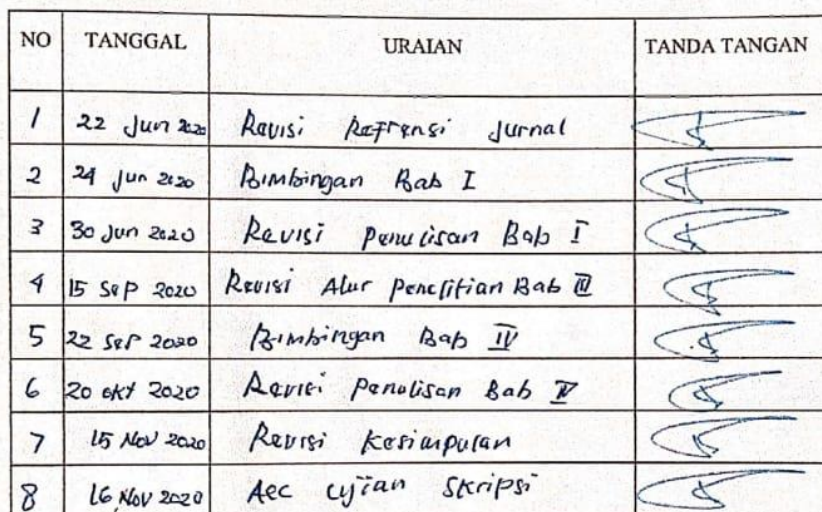 NO TANGGAL URAIAN TANDA TANGAN
1 22 Jun 2020 Revisi Refrensi Jurnal
2 24 Jun 2020 Bimbingan Bab I
3 30 Jun 2020 Revisi Penulisan Bab I
4 15 Sep 2020 Revisi Alur Penelitian Bab III
5 22 Sep 2020 Bimbingan Bab IV
6 20 okt 2020 Revisi Penulisan Bab IV
7 15 Nov 2020 Revisi Kesimpulan
8 16 Nov 2020 Acc Ujian Skripsi